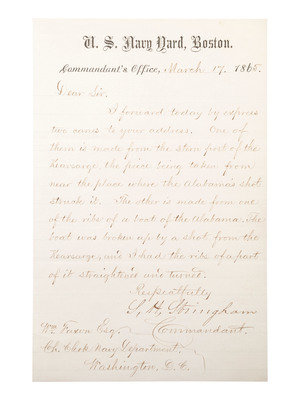 U. S. Navy Yard, Boston.
Commandant's Office, March 17, 1865.
Dear Sir,
I forward today by express
two canes to your address. One of
them is made from the stern post of the
Kearsarge, the piece being taken from
near the place where the Alabama's shot
struck it. The other is made from one
of the ribs of a boat of the Alabama. The
boat was broken up by a shot from the
Kearsarge, and I had the ribs of a part
of it straightened and turned.
Respectfully
S. H. Stringham
Wm Faxon Esq. Commandant.
Ch. Clerk Navy Department,
Washington, D. C.